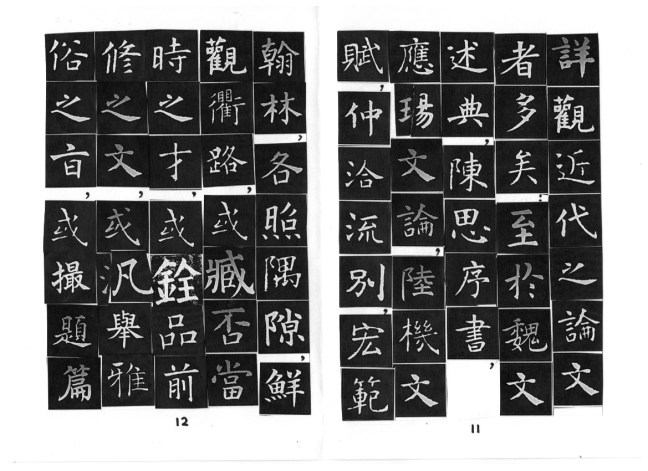 詳觀近代之論文
者多矣：至於魏文
述典，陳思序書，
應瑒文論，陸機文
賦，仲洽流別，宏範
11
翰林，各照隅隙，鮮
觀衢路，或臧否當
時之才，或銓品前
修之文，或汎舉雅
俗之旨，或撮題篇
12